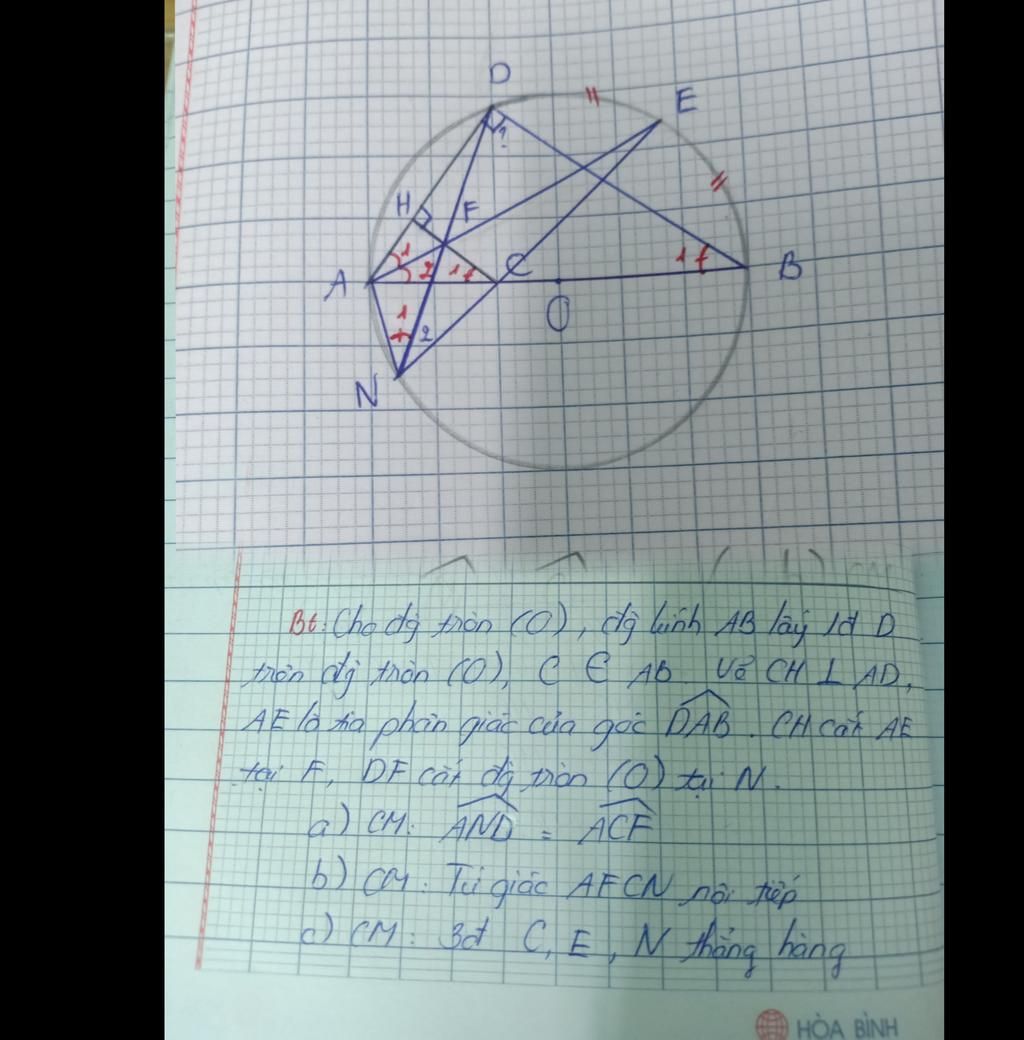 D
E
H
F
1
1
2
1
C
1
A
B
O
1
2
N
Bt: Cho đg tròn (O), đg kính AB lấy 1đ D
trên đg tròn (O), C ∈ AB. Vẽ CH ⊥ AD,
AE là tia phân giác của góc DAB. CH cắt AE
tại F, DF cắt đg tròn (O) tại N.
a) CM: AND = ACF
b) CM: Tứ giác AFCN nội tiếp
c) CM: 3đ C, E, N thẳng hàng
HÒA BÌNH